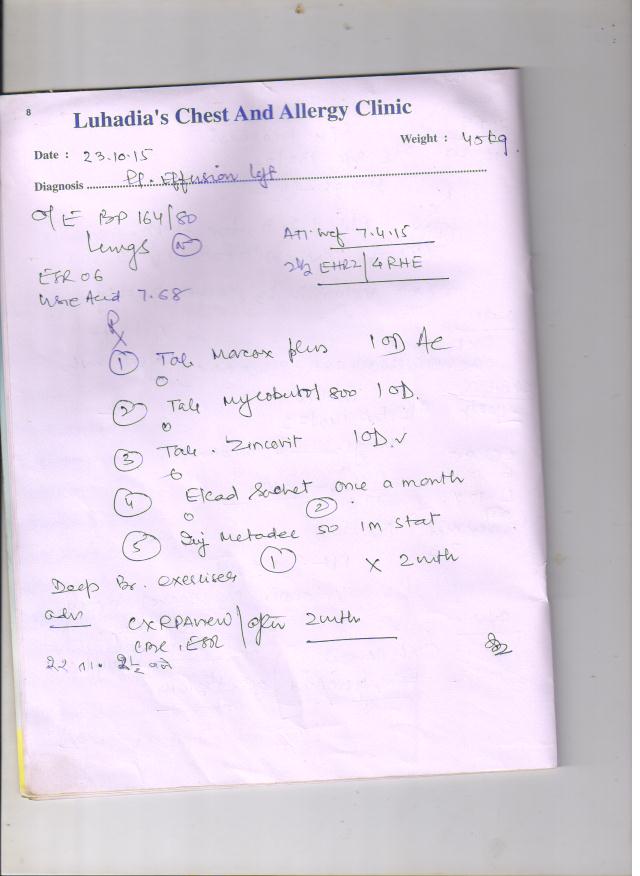 8
Luhadia's Chest And Allergy Clinic
Weight : 45kg
Date : 23.10.15
Diagnosis Pl. Effusion left
O/E BP 164/80
Lungs N
ATT wef 7.4.15
2½ EHRZ/4 RHE
ESR 06
Uric Acid 7.68
Rx
1 Tab Macox plus 1 OD AC
2 Tab Mycobutol 800 1 OD.
3 Tab. Zincovit 1 OD
4 Elcad Sachet once a month
2
5 Inj Metadec 50 im stat
1 x 2mth
Deep Br. exercises
adv CXRPAview / after 2mth
CBC, ESR
22 ता. 2½ बजे